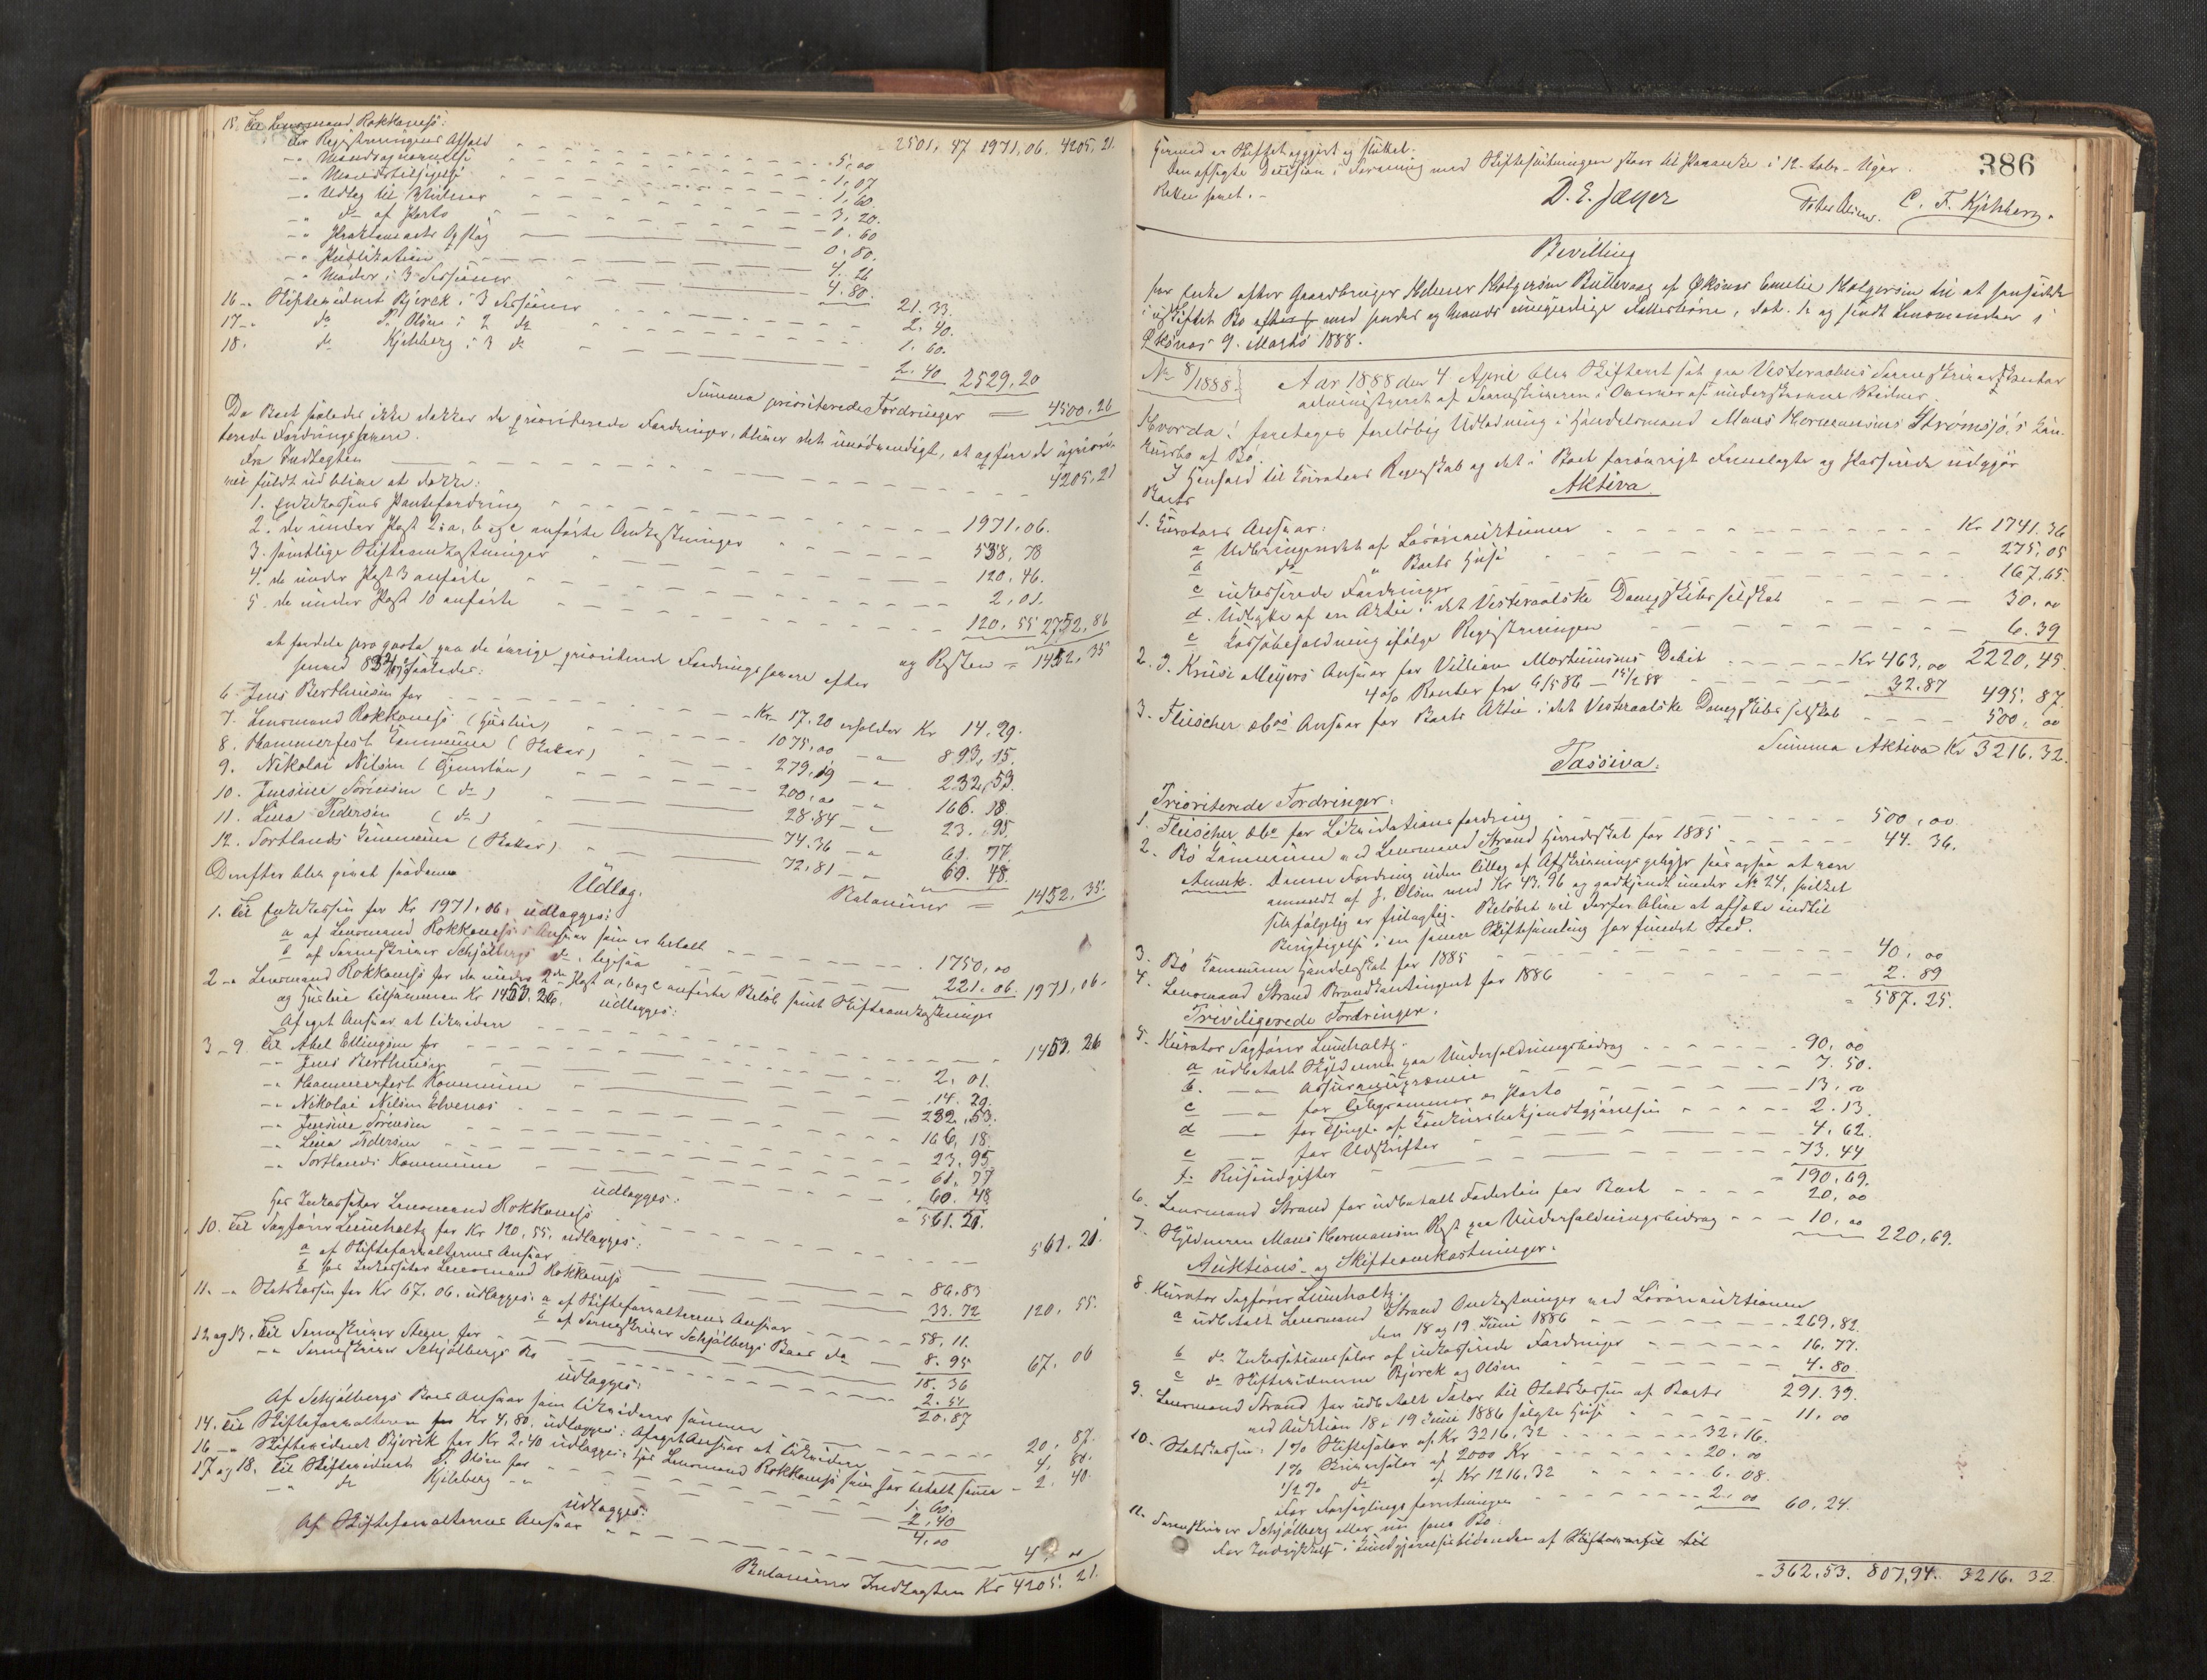 15. Til Lensmand Rokkones:
2501,47 1971,06. 4205,21.
for Registreringens Afhold 5,00
-"- 1,07
-"- 1,60.
-"- Udlag til Vidner 3,20.
-"- do af Porto 0,60
-"- Opslag 0,80.
-"- Publikation 4.26
-"- Møder i 3 Sessioner 4.80. 21.33.
16 -"- Skiftevidnet Bjørck i 3 Sessioner 2.40.
17 -"- do P. Olsen i 2 do 1.60.
18. do Kjelsberg i 3 do 2.40 2529,20
Summa prioriterede Fordringer = 4500.26
Da Boet saaledes ikke dækker de prioriterede Fordringer, bliver det unødvendigt, at opføre de uprioriterede Fordringshavere.
Fra Indtægten 4205,21
vil fuldt ud blive at dække:
1. Enkekassens Pantefordring 1971.06.
2. de under Post 2: a, b og c anførte Omkostninger 538,78
3. samtlige Skifteomkostninger 120,46.
4. de under Post 3 anførte 2,01.
5. de under Post 10 anførte 120,55 2752,86
og Resten = 1452,35
at fordele pro qvota paa de øvrige prioriterede Fordringshavere efter
6. Jens Bertheusen for Kr. 17.20 erholder Kr 14,29.
7. Lensmand Rokkones (Husleie) 1075,00 -"- 893,15.
8. Hammerfest Kommune (Skatter) 279,19 -"- 232,53.
9. Nikolai Nilsen (Tjenerløn) 200,00 -"- 166.18.
10. Jensine Sørensen (do) 28.84 -"- 23.95.
11. Lina Pedersen (do) 74.36 -"- 61.77.
12. Sortlands Kommune (Skatter) 72,81 -"- 60.48.
Balancerer = 1452.35.
Derefter blev givet saadan
Udlæg.
1. Til Enkekassen for Kr 1971.06, udlægges:
a af Lensmand Rokkones's Ansvar som er betalt 1750,00
b af Sorenskriver Schjølbergs do, ligesaa 221.06. 1971,06.
2 -"- Lensmand Rokkones for de under 2den Post a, b og c anførte Beløb samt Skifteomkostninger
og Husleie tilsammen Kr 1453.26. udlægges:
Af eget Ansvar at likvidere 1453.26
3-9. Til Abel Ellingsen for 2,01.
-"- Jens Berthensen 14.29.
-"- Hammerfest Kommune 232,53.
-"- Nikolai Nilsen Elvenes 166,18.
-"- Jensine Sørensen 23.95.
-"- Lina Pedersen 61.77
-"- Sortlands Kommune 60.48
udlægges: = 561.21.
hos Inkassator Lensmand Rokkones 561.21.
10. Til Sagfører Leinholtz for Kr 120,55, udlægges:
a af Skifteforvalterens Ansvar 86.83
b hos Inkassator Lensmand Rokkones 33.72 120,55.
11. -"- Statskassen for Kr 67.06. udlægges: a af Skifteforvalterens Ansvar 58,11.
b af Sorenskriver Schjølbergs Boes do 8.95 67.06
12 og 13. Til Sorenskriver Steen for 18.36
-"- Sorenskriver Schjølbergs Bo 2.51
udlægges: 20.87
Af Schjølbergs Boes Ansvar som likviderer samme 20.87.
14. Til Skifteforvalteren for Kr 4,80, udlægges: Af eget Ansvar at likvidere 4.80.
16 -"- Skiftevidnet Bjørck for Kr 2,40 udlægges: hos Lensmand Rokkones som har betalt samme - 2.40.
17 og 18. Til Skiftevidnet P. Olsen for 1.60.
-"- do Kjelsberg -"- 2,40
udlægges: 4,00
Af Skifteforvalterens Ansvar 4,00
Balancerer Indtægten Kr 4205.21.
386
Hermed er Skiftet opgjort og sluttet.
Den afsagte Decision i Forening med Skifteslutningen staar til Paaanke i 12- tolv - Uger.
Retten hævet.-
D. E. Jæger
Peter Olsen. C. F. Kjelsberg.
Bevilling
for Enke efter Gaardbruger Helmer Holgersen Bullevaag af Øksnes Emelie Holgersen til at hensidde
i uskiftet Bo med hendes og Mands umyndige Fællesbørn, dat. 1ste og sendt Lensmanden i
Øksnes 9. Marts 1888.
No 8/1888}
Aar 1888 den 4 April blev Skifteret sat paa Vesteraalens Sorenskriverkontor
administreret af Sorenskriveren i Overvær af underskrevne Vidner.
Hvorda: foretoges foreløbig Udlodning i Handelsmand Maus Hermansens Strømsjø's Konkursbo af Bø.
I Henhold til Kurators Regnskab og det i Boet forøvrigt Fremlagte og Passerede udgjør
Boets
Aktiva.
1. Kurators Ansvar:
a Udbringendet af Løsøreauktionen Kr 1741.36
b do " Boets Huse 275,05
c inkasserede Fordringer 167.65.
d. Udbytte af en Aktie i det Vesteraalske Dampskibsselskab 30,00
e Kassebeholdning ifølge Registreringen 6.39
2220,45.
2. J. Kriise Meyers Ansvar for Villian Mortensens Debit Kr 463,00
4% Renter fra 6/5 86 - 15/2 88 32.87 495.87.
3. Fleischer & Co's Ansvar for Boets Aktie i det Vesteraalske Dampskibsselskab 500,00
Summa Aktiva Kr 3216.32.
Passiva.
Prioriterede Fordringer.
1. Fleischer & Co for Likvidationsfordring 500,00
2. Bø Kommune ved Lensmand Strand Herredsskat for 1885 44.36.
Anmk. Denne Fordring uden Tillæg af sees ogsaa at være
anmeldt af J. Olsen med Kr 43.96 og godkjendt under No 24, hvilket
selvfølgelig er feilagtig. Beløbet vil derfor blive at afsætte indtil
Berigtigelse i en senere Skiftesamling har fundet Sted.
3. Bø Kommune Handelsskat for 1885 40,00
4. Lensmand Strand Brandkontingent for 1886 2.89
= 587.25.
Priviligerede Fordringer.
5. Kurator Sagfører Leinholtz.
a udbetalt Skyldneren paa Underholdningsbidrag 90,00
b. -"- Assurancepræmie 7.50.
c -"- for Telegrammer og Porto 13,00
d -"- for af Konkursbekjendtgjørelsen 2.13.
e -"- for Udskrifter 4,62.
f. Reiseudgifter 73.44
= 190,69.
6. Lensmand Strand for udbetalt for Boet 20,00
7. Skyldneren Maus Hermansen Rest paa Underholdningsbidrag 10,00 220,69.
Auktions- og Skifteomkostninger.
8. Kurator Sagfører Leinholtz.
a udbetalt Lensmand Strand Omkostninger ved Løsøreauktionen
den 18 og 19 Juni 1886 269,82.
b do Inkassationssalær af inkasserede Fordringer 16.77.
c do Skiftevidnerne Bjørck og Olsen 4.80.
291.39.
9. Lensmand Strand for udbetalt til Statskassen af Boets
ved Auktion 18 & 19 Juni 1886 solgte Huse 11,00
10. Statskassen: 1% Skiftesalær af Kr 3216,32 32.16.
1% Skriversalær af 2000 Kr 20.00
1/2% do af Kr 1216.32 6.08.
For Forseglingsforretningen 2.00 60,24.
11. Sorenskriver Schjølberg eller nu hans Bo:
For Indrykkelse i Kundgjørelsestidenden af
- 362.53. 807,94. 3216.32.